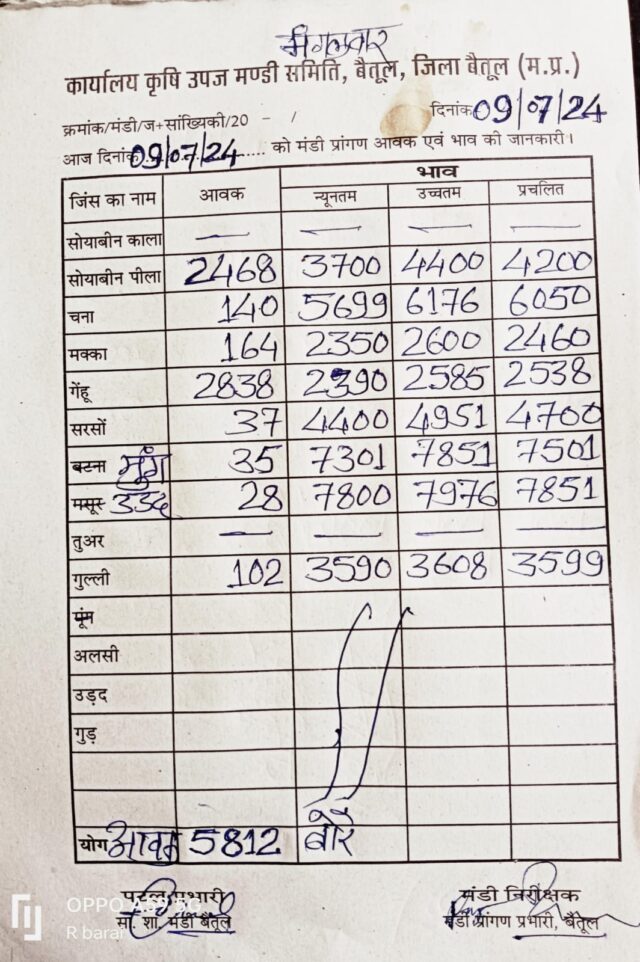 मंगलवार
कार्यालय कृषि उपज मण्डी समिति, बैतूल, जिला बैतूल (म.प्र.)
क्रमांक/मंडी/ज+सांख्यिकी/20 - / दिनांक 09/07/24
आज दिनांक 09/07/24 ........ को मंडी प्रांगण आवक एवं भाव की जानकारी।
जिंस का नाम आवक भाव
न्यूनतम उच्चतम प्रचलित
सोयाबीन काला — — — —
सोयाबीन पीला 2468 3700 4400 4200
चना 140 5699 6176 6050
मक्का 164 2350 2600 2460
गेंहू 2838 2390 2585 2538
सरसों 37 4400 4951 4700
बटना मुंग 35 7301 7851 7501
मसूर उडद 28 7800 7976 7851
तुअर — — — —
गुल्ली 102 3590 3608 3599
मूंग
अलसी
उड़द
गुड़
योग आवक 5812 बोरे
प्रभारी मंडी निरीक्षक
सां. शा. मंडी बैतूल मंडी प्रांगण प्रभारी, बैतूल
OPPO A52 5G
R barar